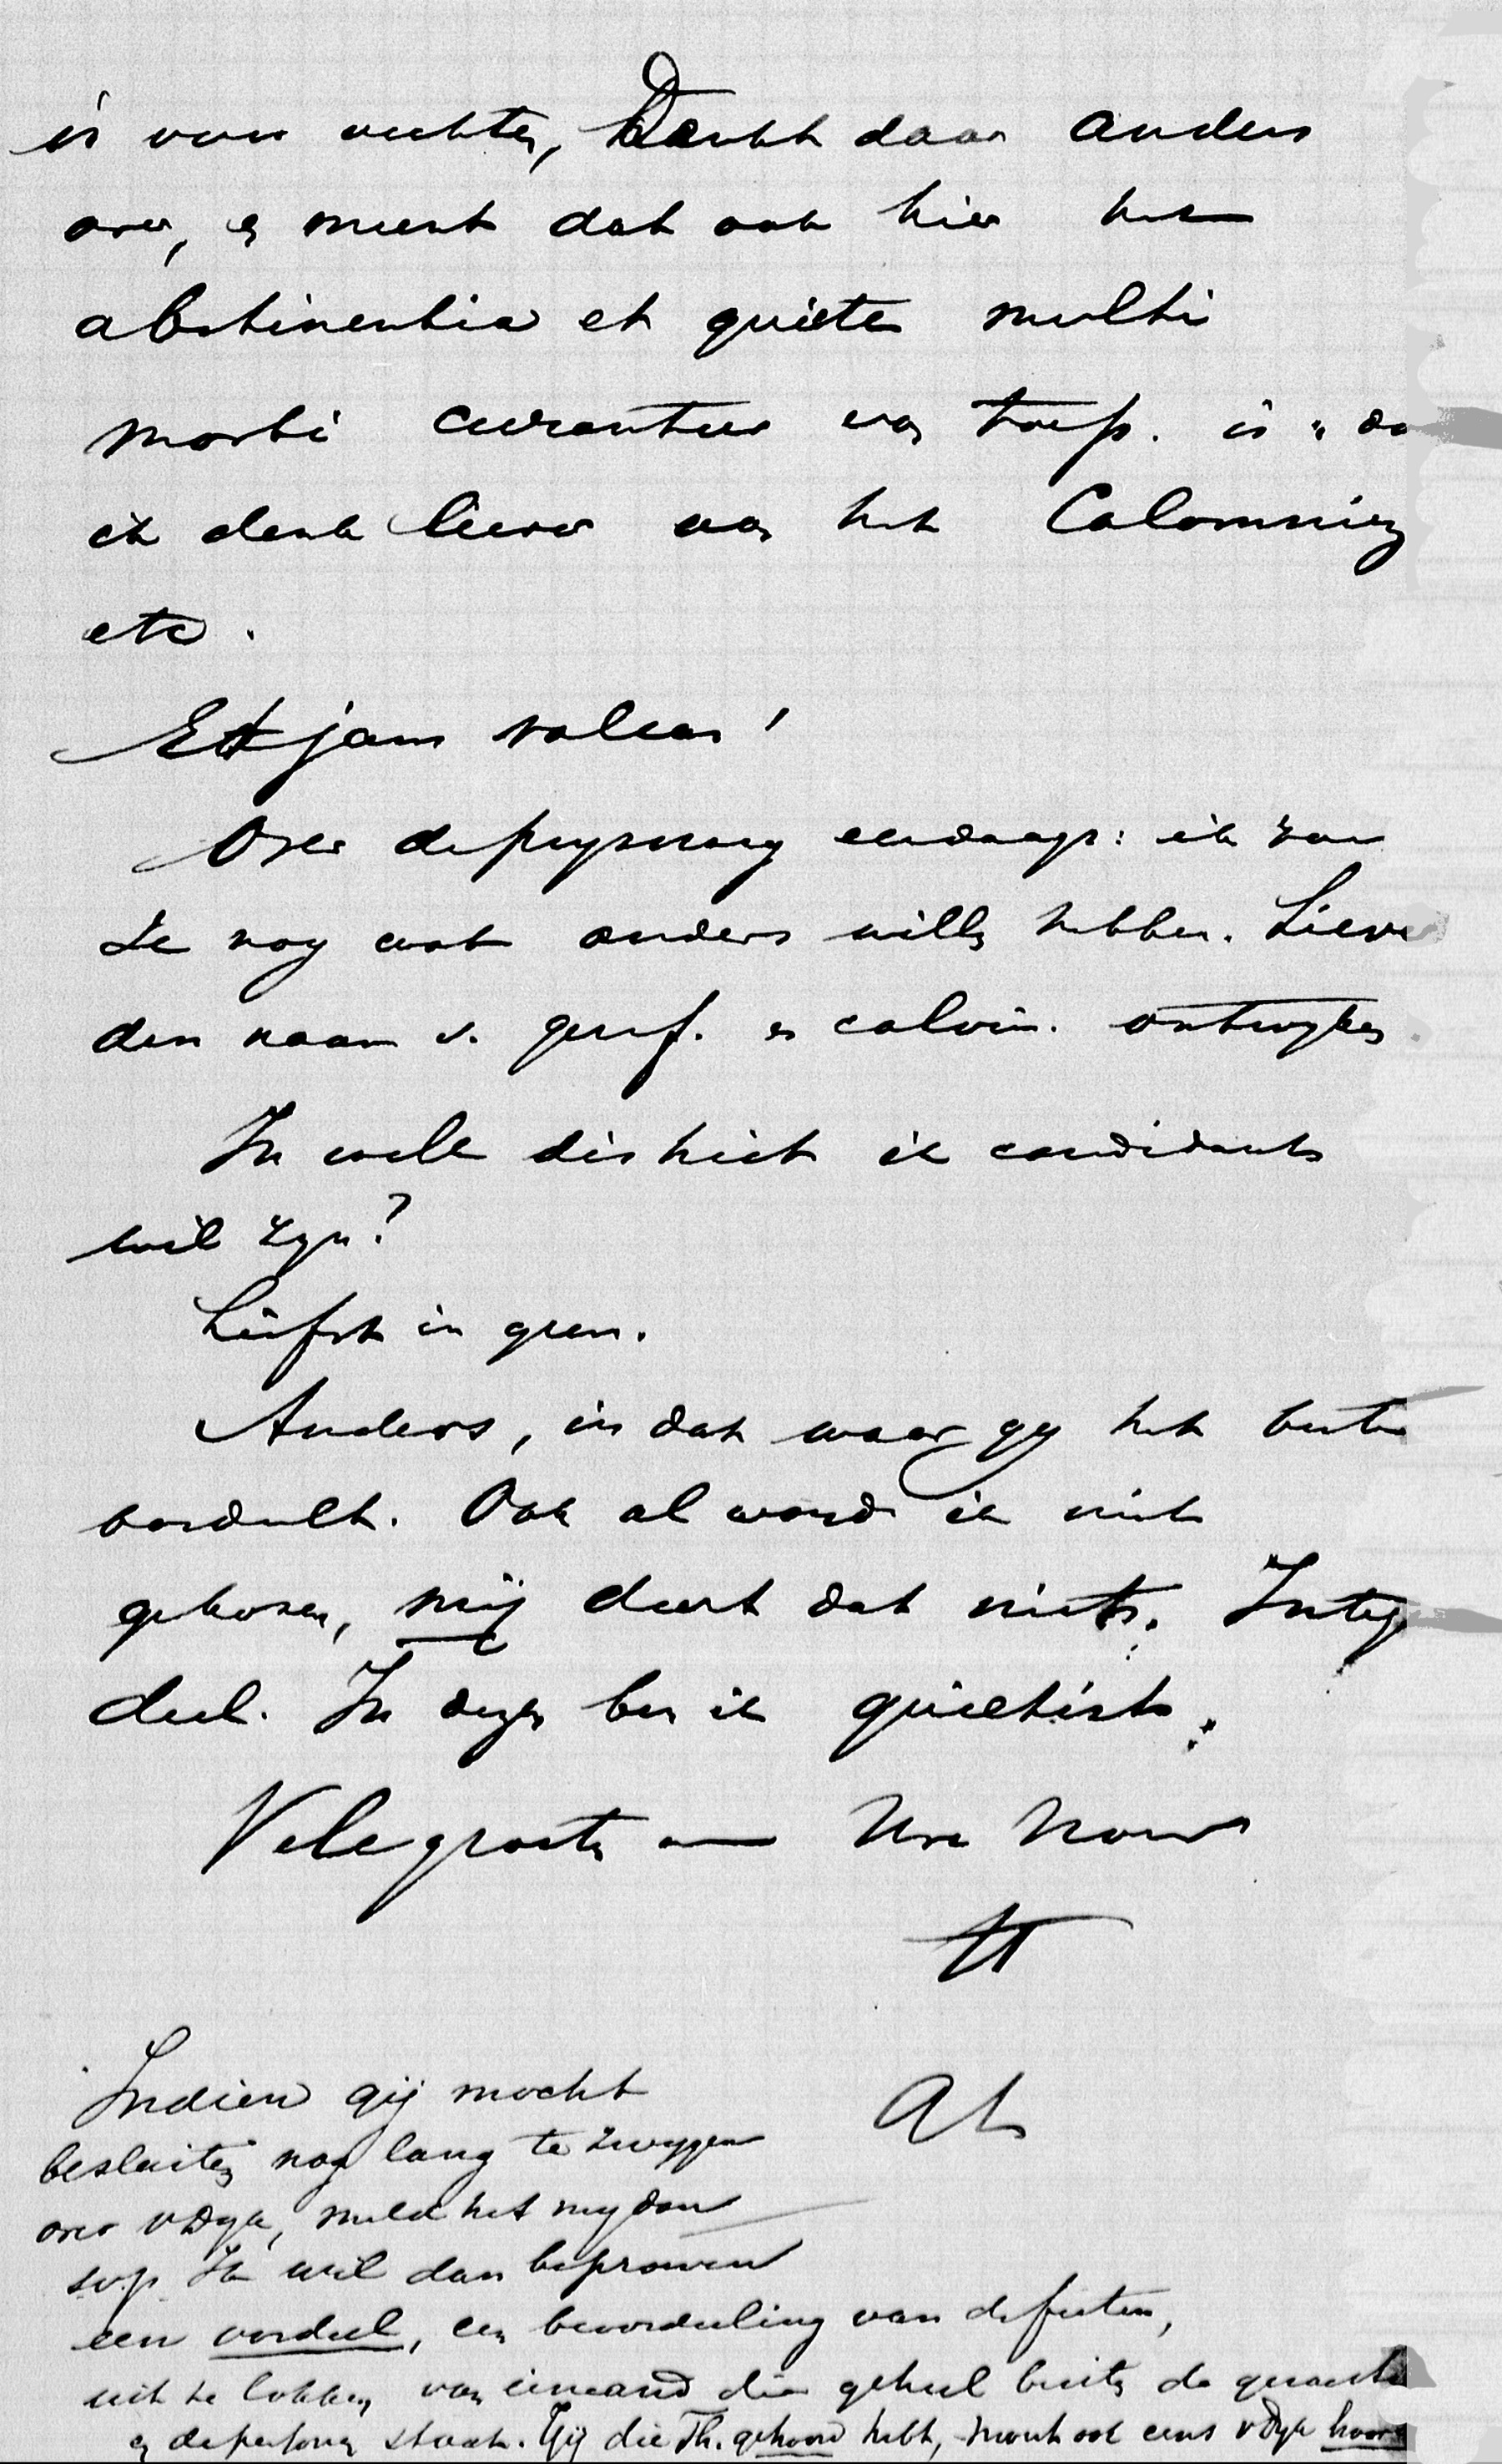 is van vechten, Denkt daar anders
over, en meent dat ook hier het
abstinentia et quiete multi
morbi curantur van toep. is,
ik denk liever aan het Calomniez
etc.
Et jam valeas!
Over de prijsvraag eerdaags: ik zou
ze nog wat anders willen hebben. Liever
den naam v. geref. en calvin. ontwijken
In welk district ik candidaat
wil zijn?
Liefst in geen.
Anders, in dat waar gij het beste
oordeelt. Ook al word ik niet
gekozen, mij deert dat niets. Integen
deel. In dezen ben ik quietist.
Vele groeten Uwe
Indien gij mocht
besluiten nog lang te zwijgen
over v Dijk, meld het mij dan
svp. Ik wil dan beproeven
een oordeel, een beoordeeling van de feiten,
uit te lokken van iemand die geheel buiten de quaestie
en de personen staat. Gij die Th. gehoord hebt, moet ook eens v Dijk hooren